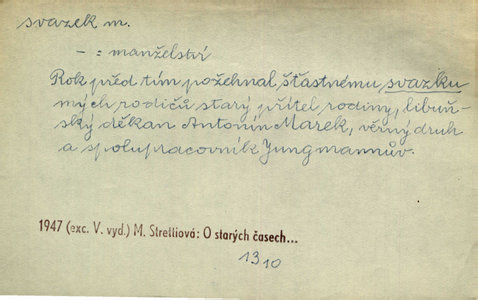 svazek m.
- = manželství
Rok před tím požehnal šťastnému svazku
mých rodičů starý přítel rodiny, libuň-
ský děkan Antonín Marek, věrný druh
a spolupracovník Jungmannův.
1947 (exc. V. vyd.) M. Strettiová: O starých časech...
13 10